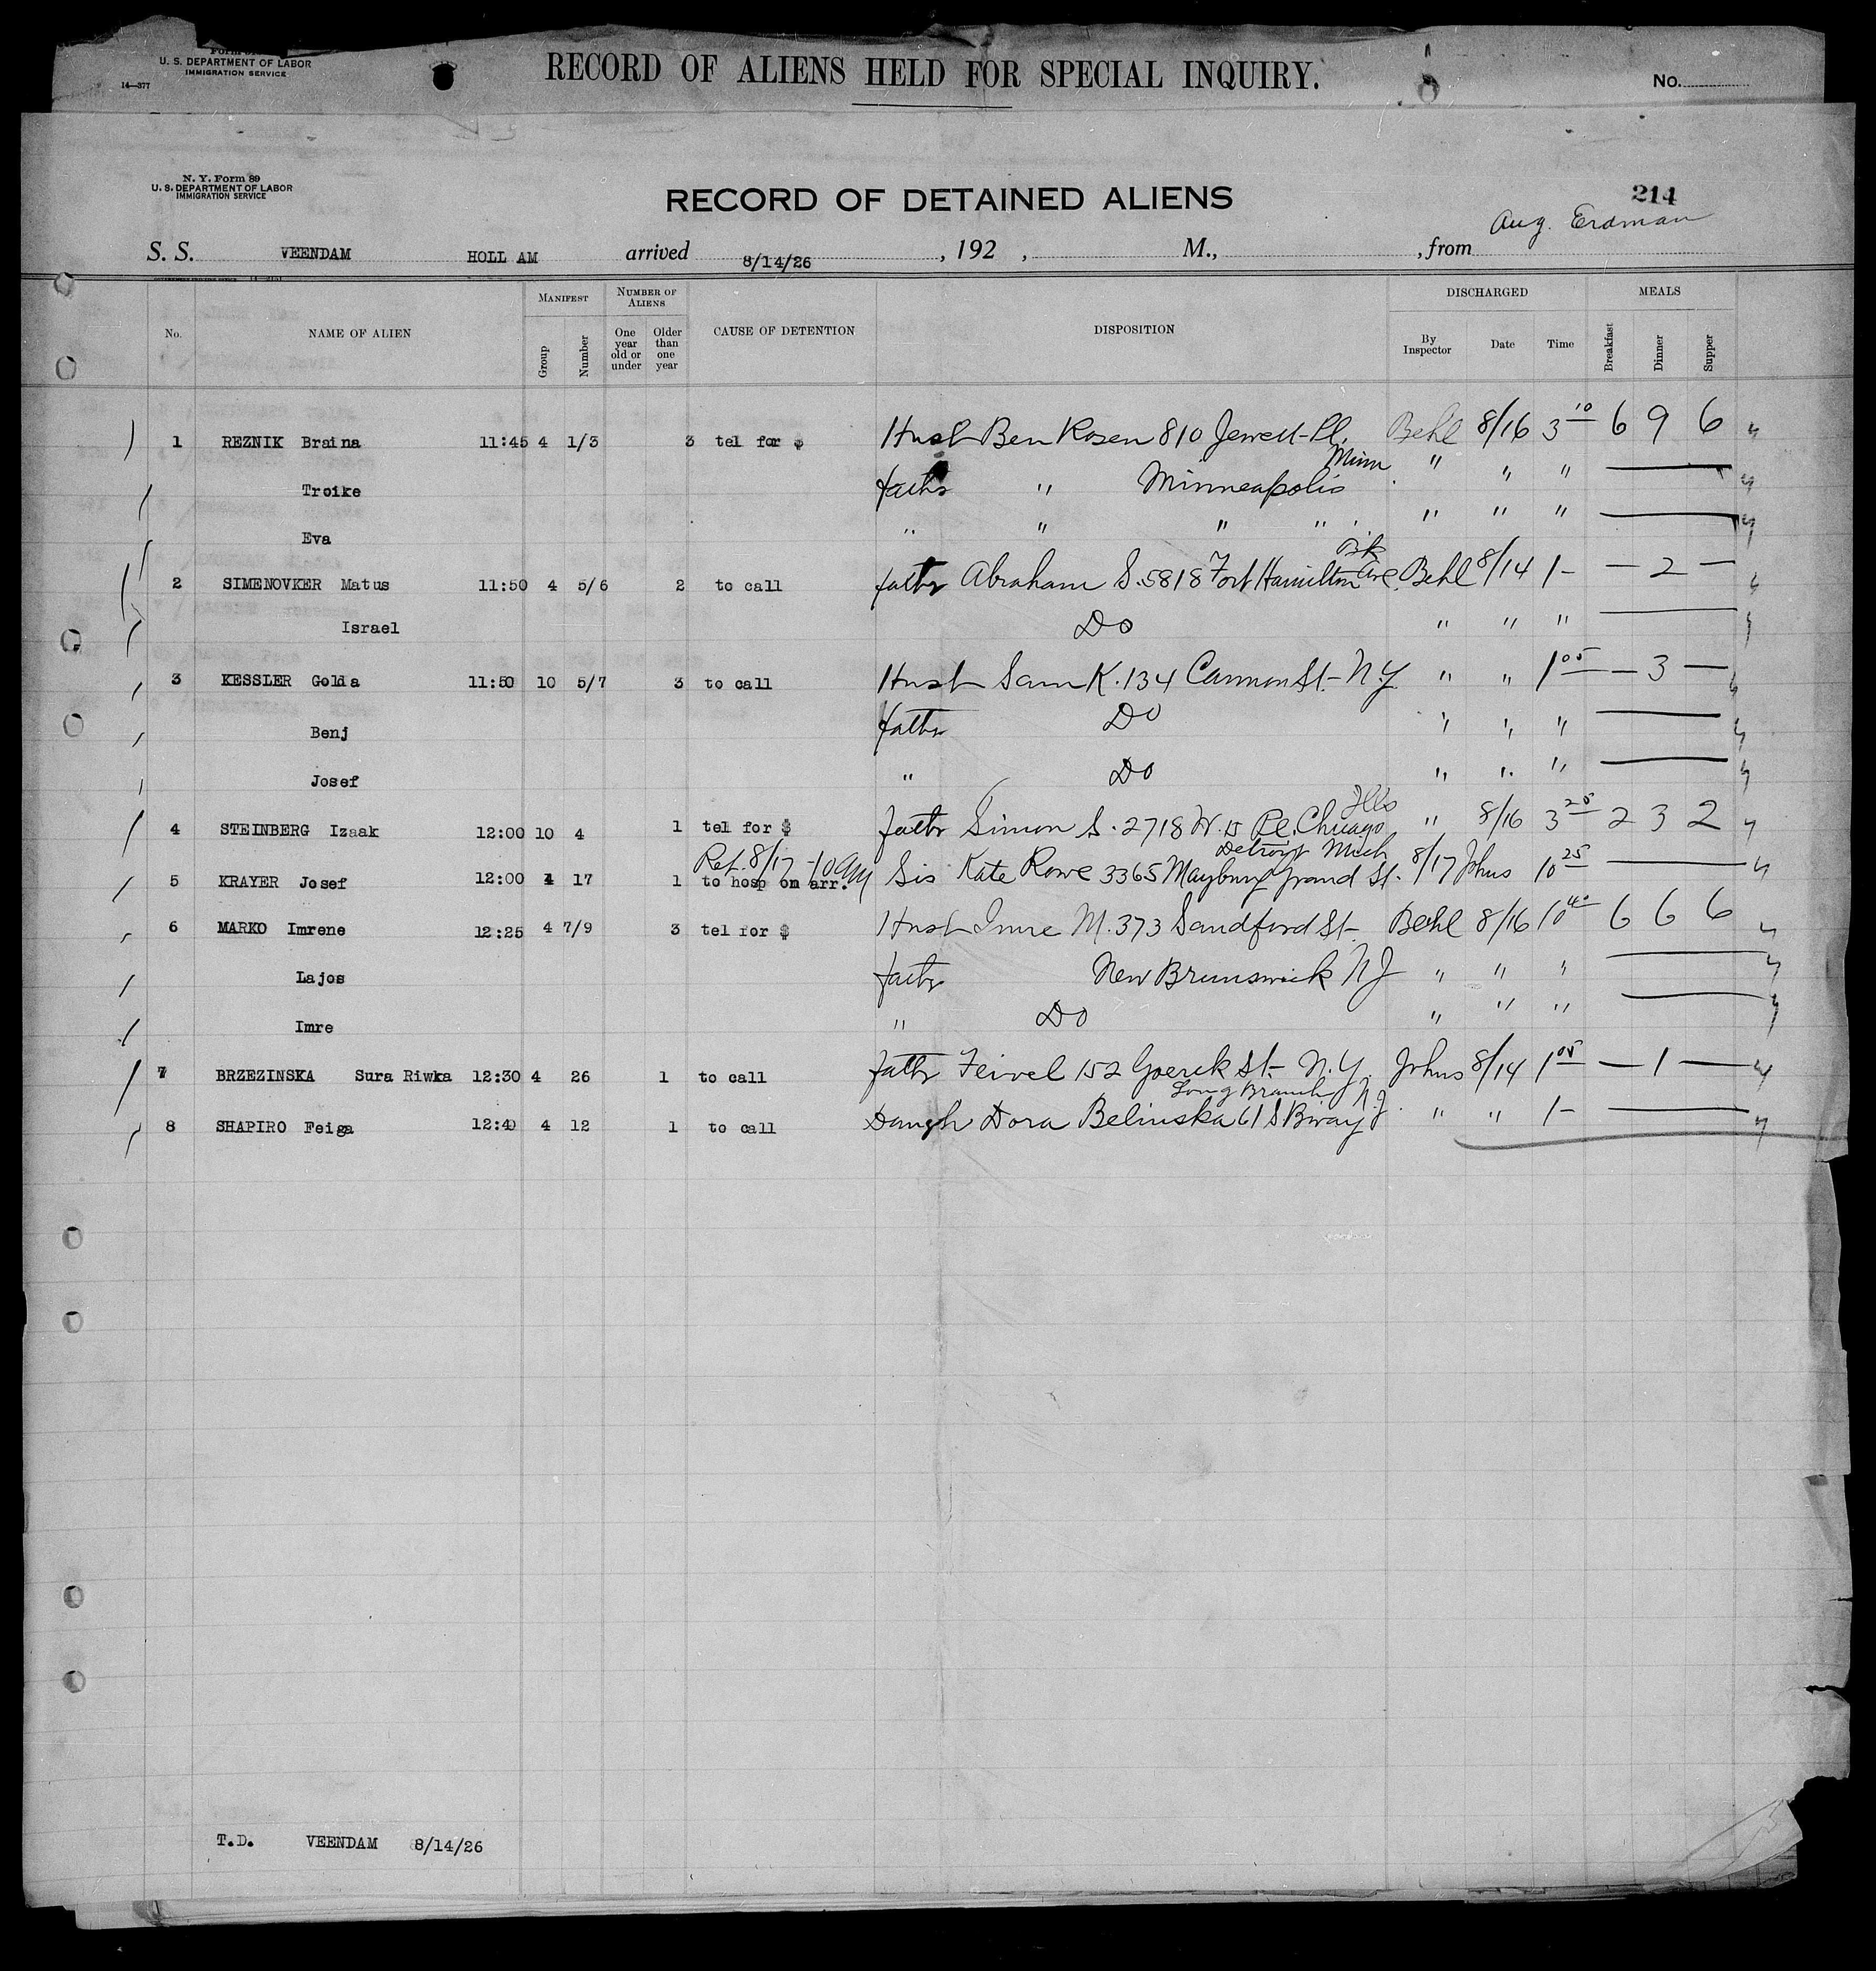 U. S. DEPARTMENT OF LABOR
IMMIGRATION SERVICE
14—377
RECORD OF ALIENS HELD FOR SPECIAL INQUIRY.
No.
N. Y. Form 89
U. S. DEPARTMENT OF LABOR
IMMIGRATION SERVICE
RECORD OF DETAINED ALIENS
214
Aug. Erdman
S. S. VEENDAM HOLL AM arrived 8/14/26, 192 , M., , from
No. NAME OF ALIEN MANIFEST Group Number NUMBER OF ALIENS One year old or under Older than one year CAUSE OF DETENTION DISPOSITION DISCHARGED By Inspector Date Time MEALS Breakfast Dinner Supper
1 REZNIK Braina 11:45 4 1/3 3 tel for $ Husb Ben Rosen 810 Jewell Pl. Behl 8/16 3 10 6 9 6
Minn
Troike fathr " Minneapolis " " "
Eva " " " " " " "
Pk
2 SIMENOVKER Matus 11:50 4 5/6 2 to call fathr Abraham S. 5818 Fort Hamilton Ave. Behl 8/14 1- — 2 —
Israel Do " " "
3 KESSLER Golda 11:50 10 5/7 3 to call Husb Sam K. 134 Cannon St. N.Y. " " 1 05 — 3 —
Benj fathr Do " " "
Josef " Do " " "
Ills
4 STEINBERG Izaak 12:00 10 4 1 tel for $ fathr Simon S. 2718 W. 15 Pl. Chicago " 8/16 3 25 2 3 2
Ref. 8/17 - 10 AM Detroit Mich
5 KRAYER Josef 12:00 4 17 1 to hosp on arr. Sis Kate Rowe 3365 Maybury Grand St. 8/17 Johns 10 25
6 MARKO Imrene 12:25 4 7/9 3 tel for $ Husb Imre M. 373 Sandford St. Behl 8/16 10 40 6 6 6
Lajos fathr New Brunswick N J " " "
Imre " Do " " "
7 BRZEZINSKA Sura Riwka 12:30 4 26 1 to call fathr Feivel 152 Goerck St. N.Y. Johns 8/14 1 05 — 1 —
Long Branch N.J.
8 SHAPIRO Feiga 12:40 4 12 1 to call Daugh Dora Belinska 61 S Bway " " 1-
T.D. VEENDAM 8/14/26